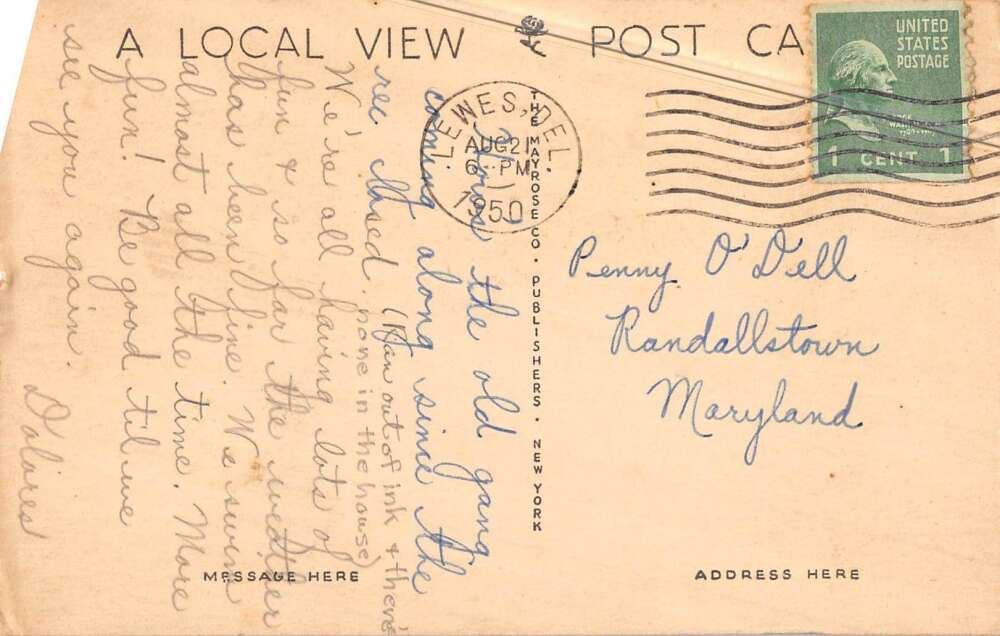 A LOCAL VIEW POST CA
UNITED
STATES
POSTAGE
1 CENT 1
LEWES, DEL.
AUG 21
6 PM
1950
How's the old gang
coming along since the
rec closed. (Ran out of ink & there's
none in the house)
We're all having lots of
fun & so far the weather
has been fine. We swim
almost all the time. More
fun! Be good til we
see you again. Dolores
THE MAYROSE CO. PUBLISHERS. NEW YORK
Penny O'Dell
Randallstown
Maryland
MESSAGE HERE
ADDRESS HERE